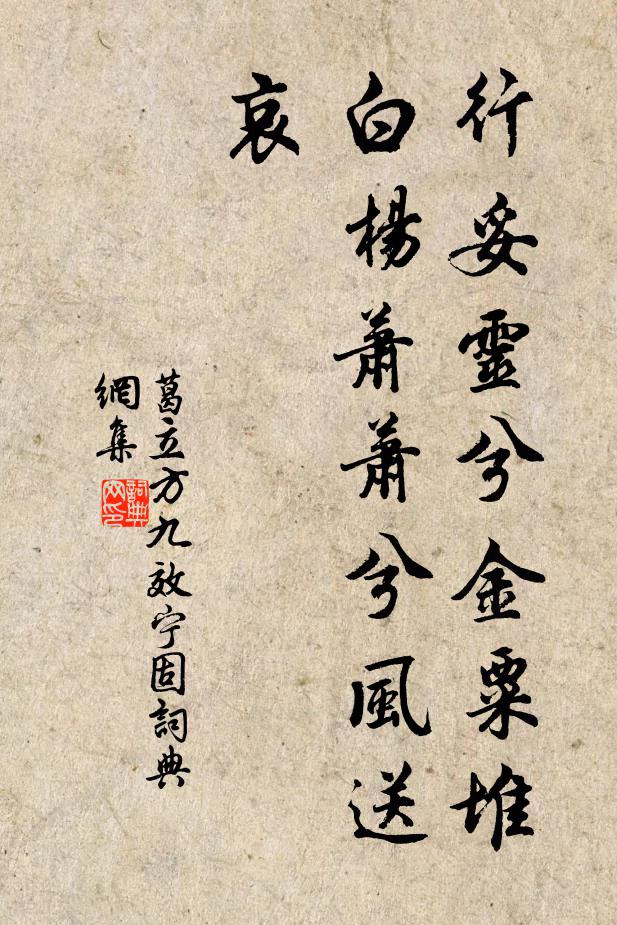 行妥靈兮金粟堆
白楊蕭蕭兮風送
哀
葛立方九效宁固詞典
網集
詞典网印